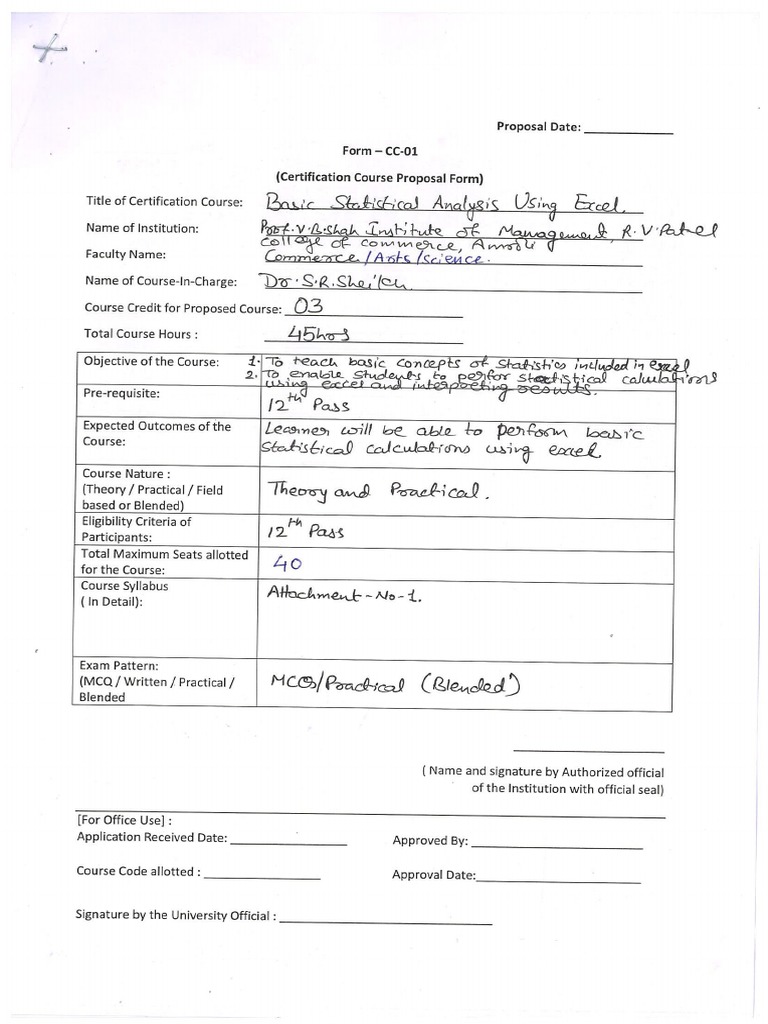 Proposal Date: ____________
Form – CC-01
(Certification Course Proposal Form)
Title of Certification Course: Basic Statistical Analysis Using Excel.
Name of Institution: Prof.V.B.Shah Institute of Management, R.V.Patel
College of commerce, Amroli
Faculty Name: Commerce/Arts/Science.
Name of Course-In-Charge: Dr.S.R.Sheikh
Course Credit for Proposed Course: 03
Total Course Hours : 45hrs
Objective of the Course: 1. To teach basic concepts of statistics included in excel
2. To enable students to perfor statistical calculations
using excel and interpreting results.
Pre-requisite: 12th Pass
Expected Outcomes of the Learner will be able to perform basic
Course: Statistical calculations using excel.
Course Nature :
(Theory / Practical / Field Theory and Practical.
based or Blended)
Eligibility Criteria of 12th Pass
Participants:
Total Maximum Seats allotted 40
for the Course:
Course Syllabus Attachment-No-1.
( In Detail):
Exam Pattern:
(MCQ / Written / Practical / MCQs/Practical (Blended)
Blended
( Name and signature by Authorized official
of the Institution with official seal)
[For Office Use] :
Application Received Date: ____________ Approved By: ____________
Course Code allotted : ____________ Approval Date: ____________
Signature by the University Official : ____________